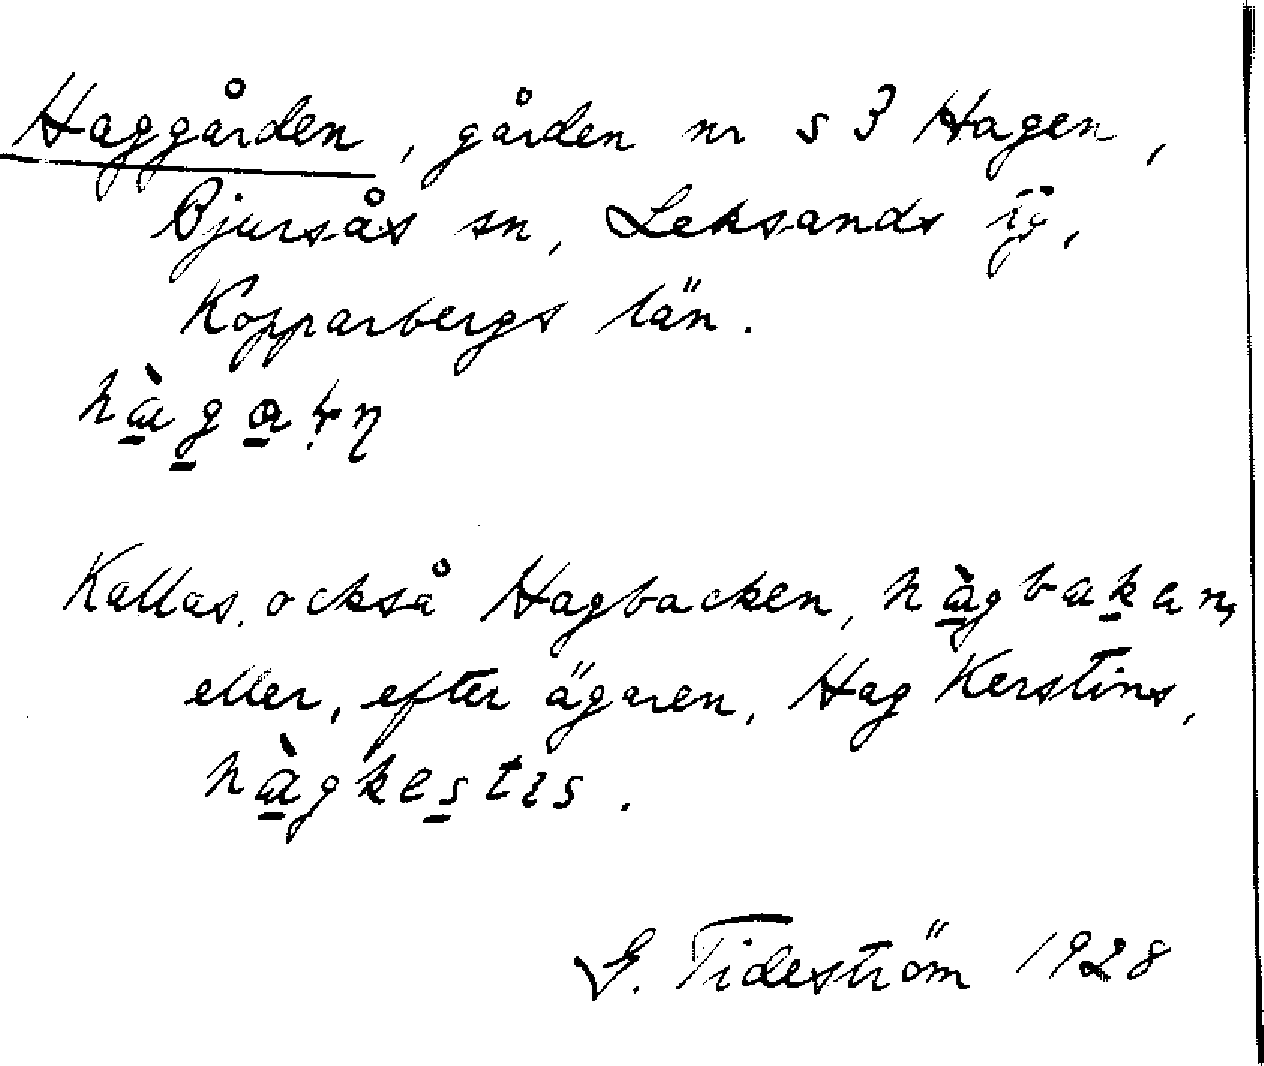 Haggården, gården nr s 3 Hagen,
Bjursås sn, Leksands tg,
Kopparbergs län.
Kallas också Hagbacken, hàgbakan,
eller, efter ägaren, Hag Kerstins,
hàgkestis.
G. Tideström 1928